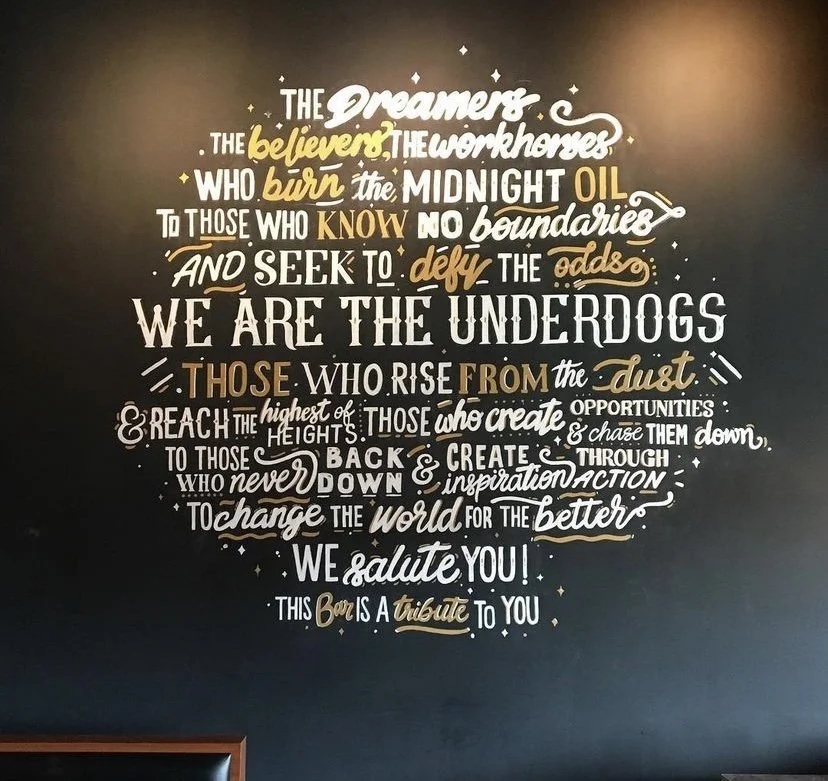 THE Dreamers
THE believers, THE workhorses
WHO burn the MIDNIGHT OIL
TO THOSE WHO KNOW NO boundaries
AND SEEK TO defy THE odds
WE ARE THE UNDERDOGS
THOSE WHO RISE FROM the dust
& REACH THE highest of HEIGHTS. THOSE who create OPPORTUNITIES & chase THEM down,
TO THOSE WHO never BACK DOWN & CREATE inspiration THROUGH ACTION
TO change THE world FOR THE better
WE salute YOU!
THIS Bar IS A tribute TO YOU